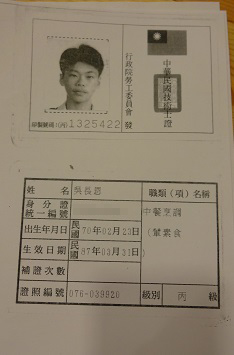 中華民國技術士證
行政院勞工委員會 發
1325422
姓名 吳長恩
職類(項)名稱
身分證統一編號
中餐烹調
(葷素食)
出生年月日 民國 70年02月23日
生效日期 民國 87年03月31日
補證次數
證照編號 076-039820
級別 丙 級